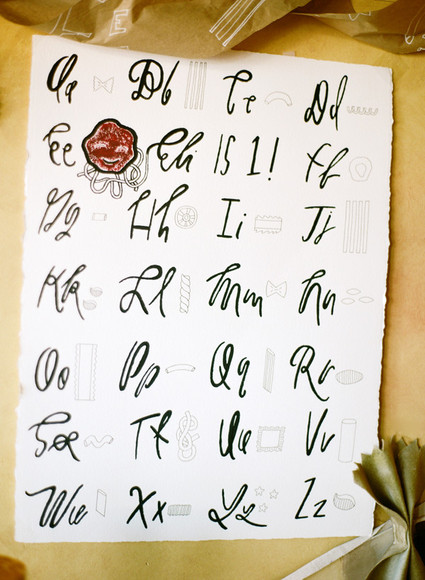 Aa Bb Cc Dd
Ee Eli IS 1! Ff
Gg Hh Ii Jj
Kk Ll Mm Nn
Oo Pp Qq Rr
Ss Tt Uu Vv
Ww Xx Yy Zz